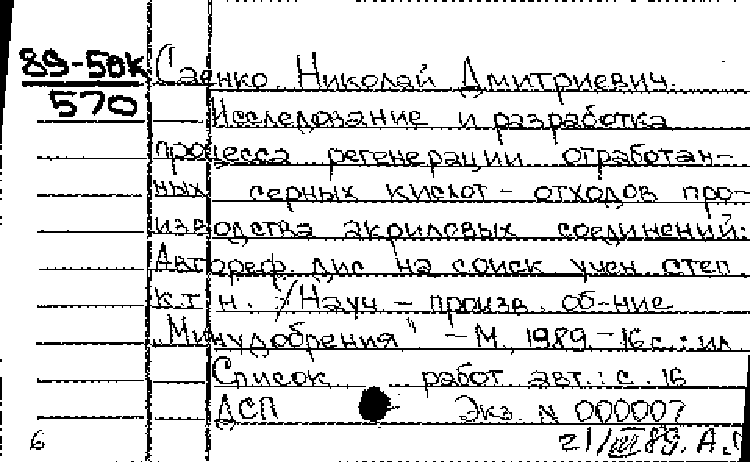 89-50К Саенко Николай Дмитриевич.
570
Исследование и разработка
процесса регенерации отработан-
ных серных кислот - отходов про-
изводства акриловых соединений:
Автореф. дис на соиск учен. степ.
к.т н. /Науч - произв. об-ние
"Минудобрения" - М., 1989.-16с.: ил
Список работ. авт.: с. 16
ДСП Экз. N 000007
6 21/III 89. А.